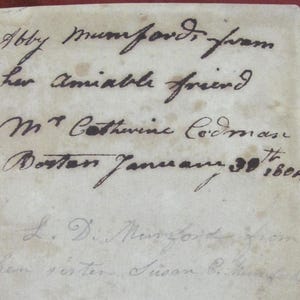 Abby Mumford's from
her amiable friend
Mrs Catherine Codman
Boston January 30th 180
L. D. Mumford from
her sister Susan C. Mumford